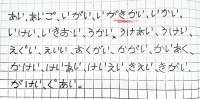 あい、あいご、いがい、いがきかい、いかい、
いけい、いきおい、うかい、うけあい、うけい、
えぐい、えいい、おくがい、かがい、かいあく、
かけい、けいあい、けいえい、きえい、きがい、
がけい、ぐあい。